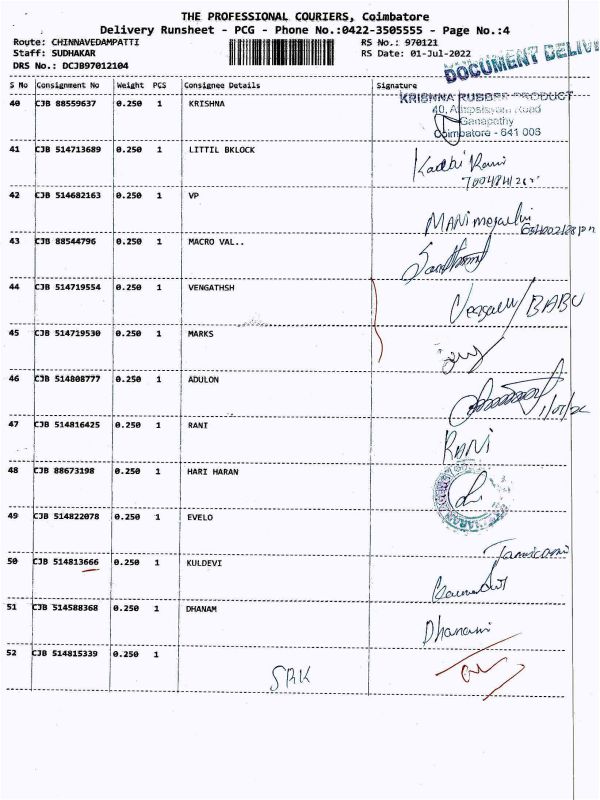 THE PROFESSIONAL COURIERS, Coimbatore
Delivery Runsheet - PCG - Phone No.:0422-3505555 - Page No.:4
Route: CHINNAVEDAMPATTI RS No.: 970121
Staff: SUDHAKAR RS Date: 01-Jul-2022
DRS No.: DCJB97012104
DOCUMENT DELIV
S No Consignment No Weight PCS Consignee Details Signature
40 CJB 88559637 0.250 1 KRISHNA
KRISHNA RUBBER PRODUCT
40, Road
Ganapathy
Coimbatore - 641 006
41 CJB 514713689 0.250 1 LITTIL BKLOCK
42 CJB 514682163 0.250 1 VP
43 CJB 88544796 0.250 1 MACRO VAL..
44 CJB 514719554 0.250 1 VENGATHSH
BABU
45 CJB 514719530 0.250 1 MARKS
46 CJB 514808777 0.250 1 ADULON
47 CJB 514816425 0.250 1 RANI
RANI
48 CJB 88673198 0.250 1 HARI HARAN
49 CJB 514822078 0.250 1 EVELO
50 CJB 514813666 0.250 1 KULDEVI
51 CJB 514588368 0.250 1 DHANAM
Dhanam
52 CJB 514815339 0.250 1
SRK